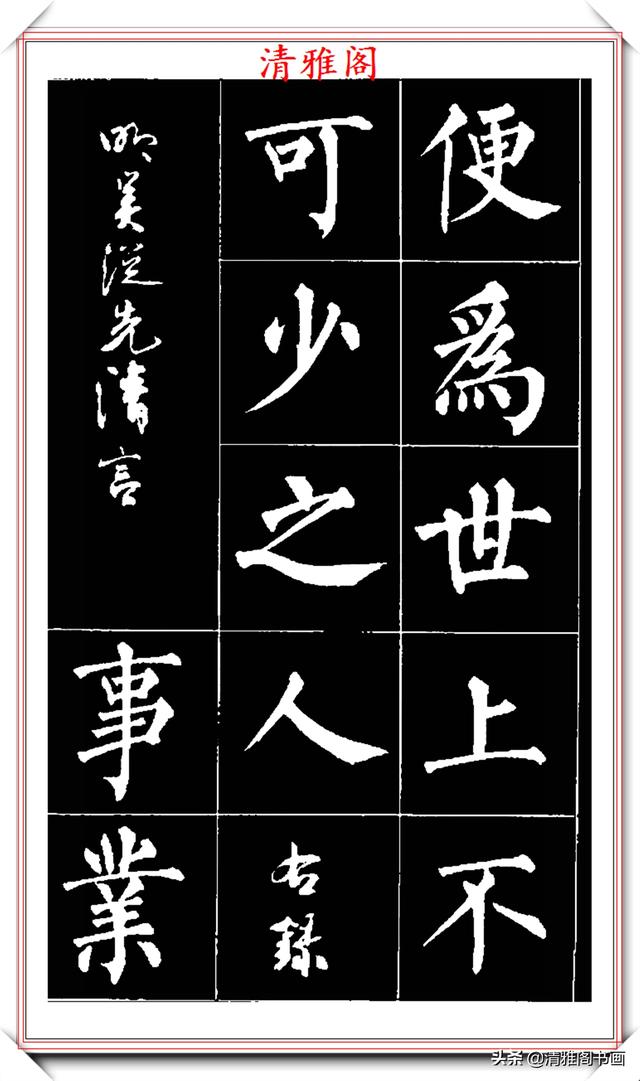 清雅阁
便爲世上不
可少之人
右錄
明吴從先清言
事業
头条@清雅阁书画